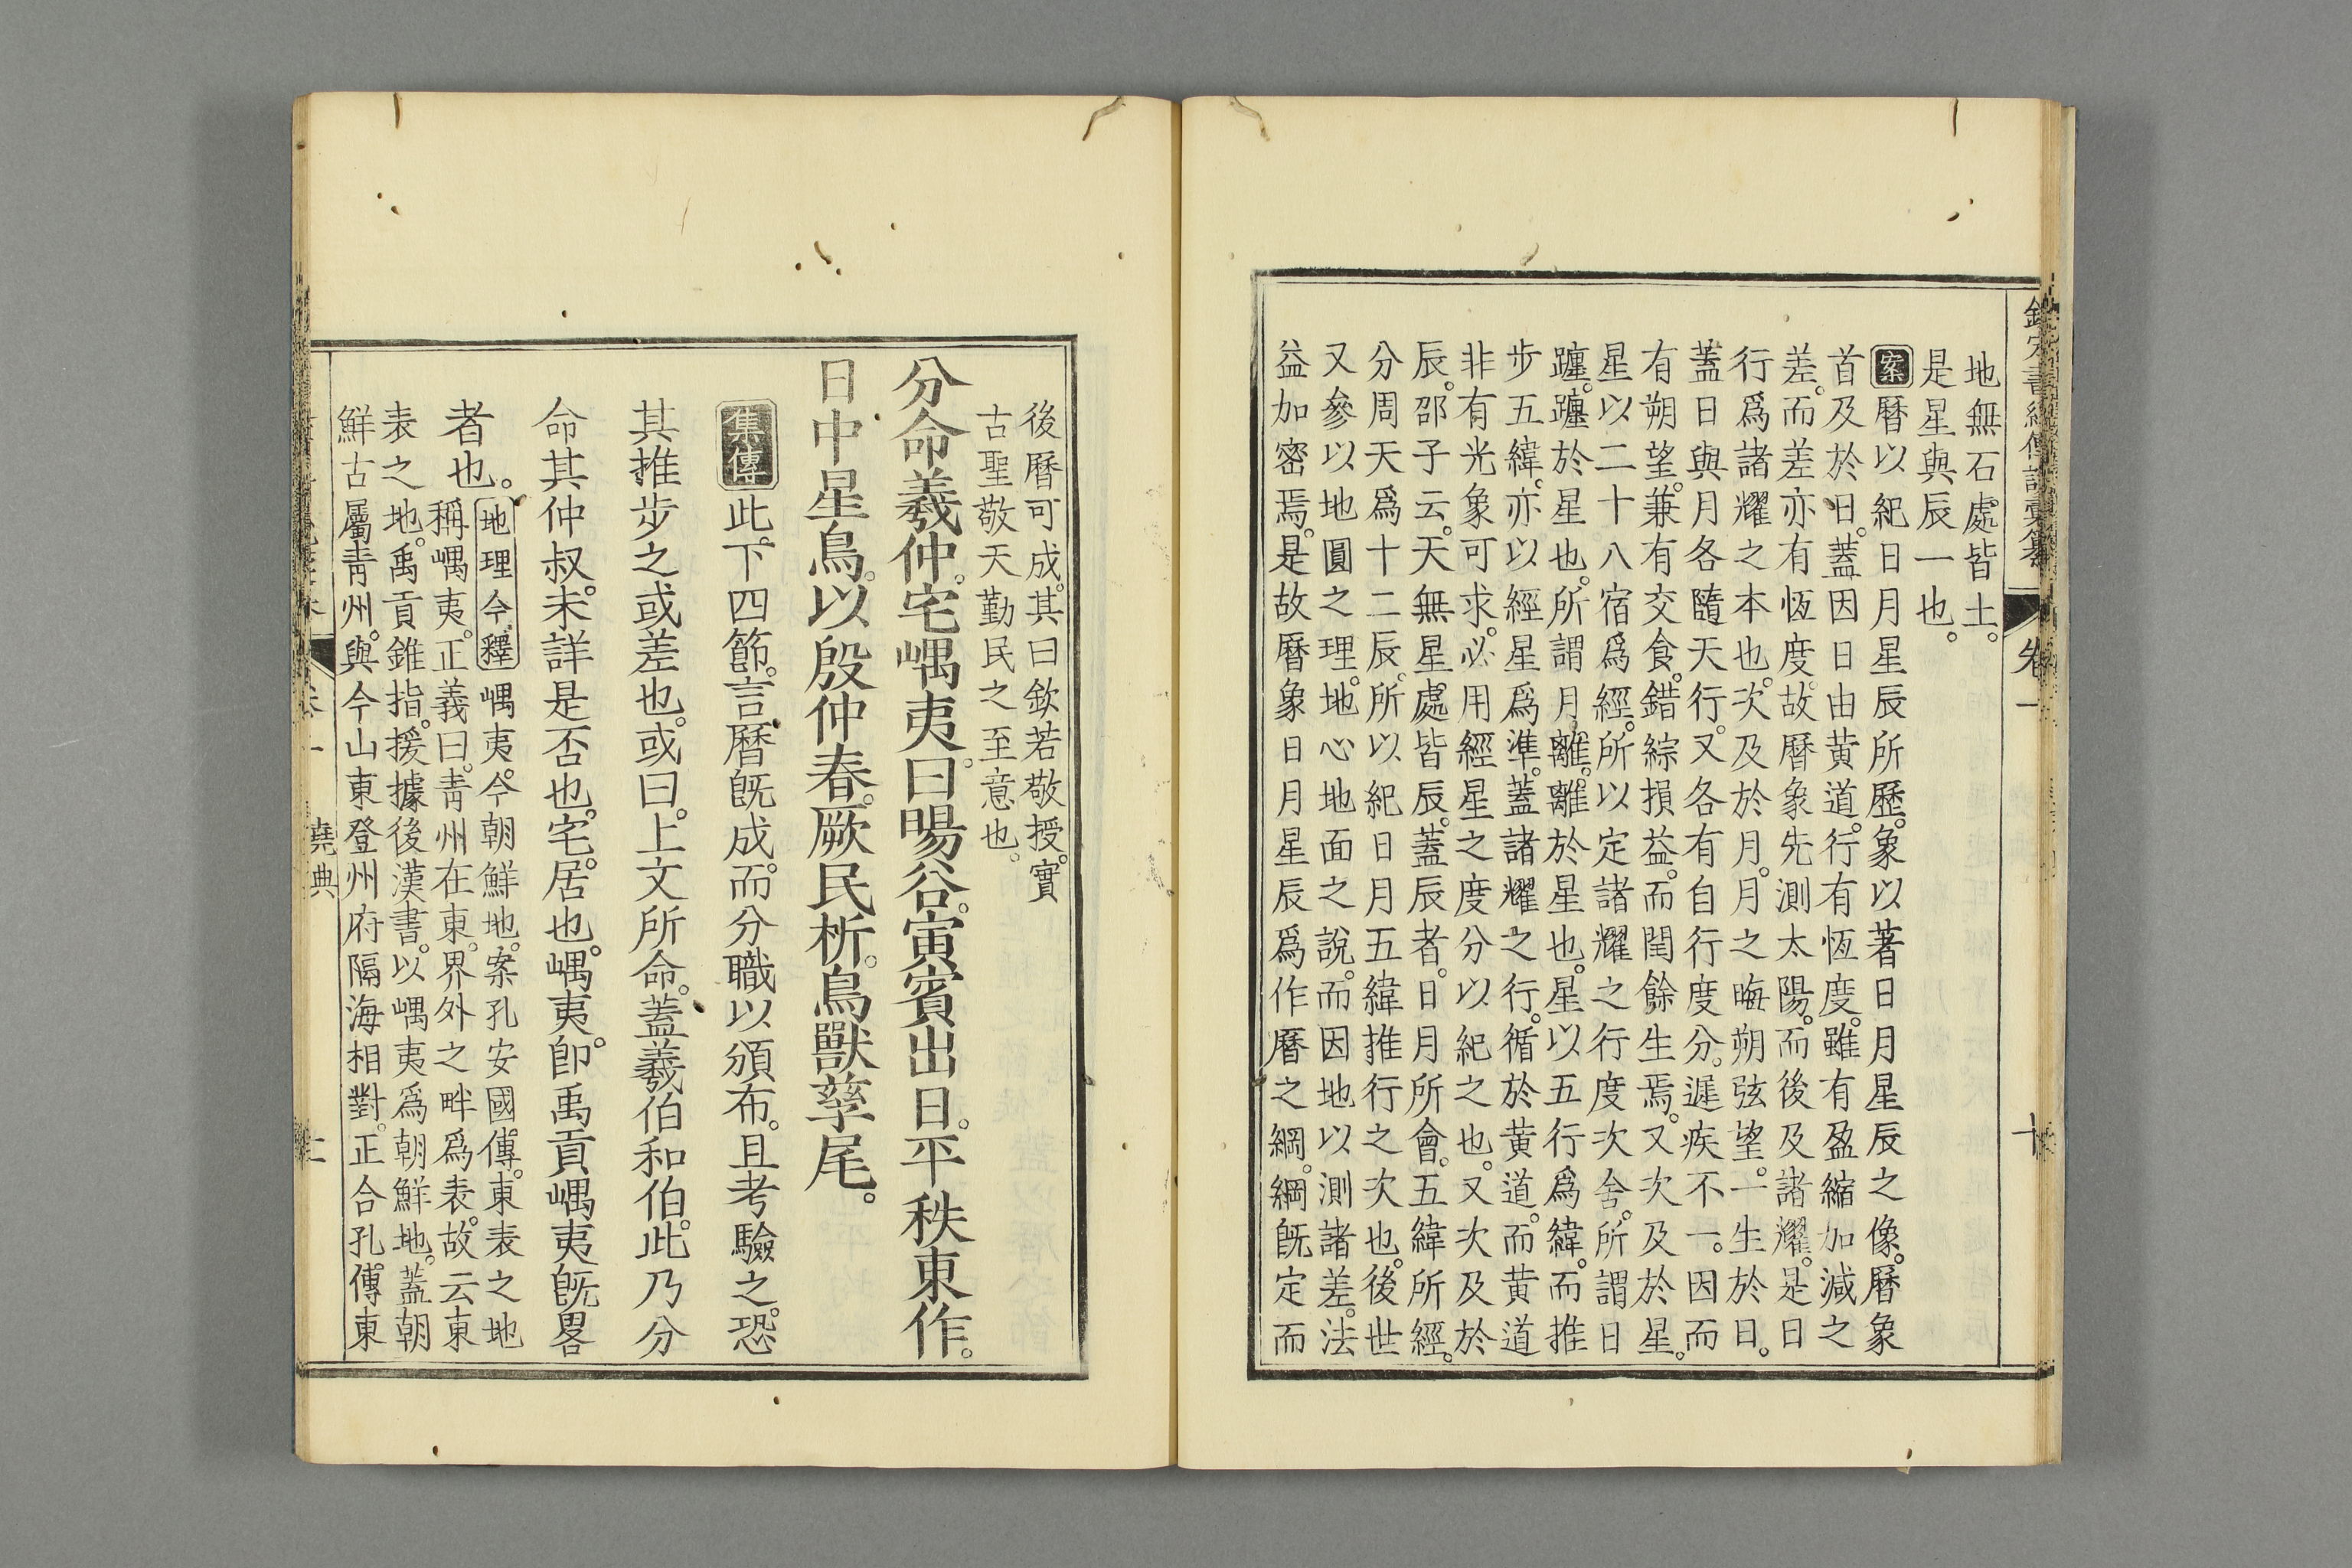 地無石處皆土。
是星與辰一也。
案曆以紀日月星辰所歷。象以著日月星辰之像。曆象
首及於日。蓋因日由黃道。行有恆度。雖有盈縮加減之
差。而差亦有恆度。故曆象先測太陽。而後及諸耀。是日
行爲諸耀之本也。次及於月。月之晦朔弦望。一生於日。
蓋日與月各隨天行。又各有自行度分。遲疾不一。因而
有朔望。兼有交食。錯綜損益。而閏餘生焉。又次及於星。
星以二十八宿爲經。所以定諸耀之行度次舍。所謂日
躔。躔於星也。所謂月離。離於星也。星以五行爲緯。而推
步五緯。亦以經星爲準。蓋諸耀之行。循於黃道。而黃道
非有光象可求。必用經星之度分以紀之也。又次及於
辰。邵子云。天無星處皆辰。蓋辰者。日月所會。五緯所經。
分周天爲十二辰。所以紀日月五緯推行之次也。後世
又參以地圓之理。地心地面之說。而因地以測諸差。法
益加密焉。是故曆象日月星辰爲作曆之綱。綱旣定而
卷一
後曆可成。其曰欽若敬授。實
古聖敬天勤民之至意也。
分命羲仲。宅嵎夷。曰暘谷。寅賓出日。平秩東作。
日中星鳥。以殷仲春。厥民析。鳥獸孳尾。
集傳此。下四節。言曆旣成。而分職以頒布。且考驗之。恐
其推步之或差也。或曰。上文所命。蓋羲伯和伯。此乃分
命其仲叔。未詳是否也。宅。居也。嵎夷。卽禹貢嵎夷旣畧
者也。
地理今釋嵎夷。今朝鮮地。案孔安國傳。東表之地
稱嵎夷。正義曰。靑州在東。界外之畔爲表。故云東
表之地。禹貢錐指。援據後漢書。以嵎夷爲朝鮮地。蓋朝
鮮古屬靑州。與今山東登州府隔海相對。正合孔傳東
堯典